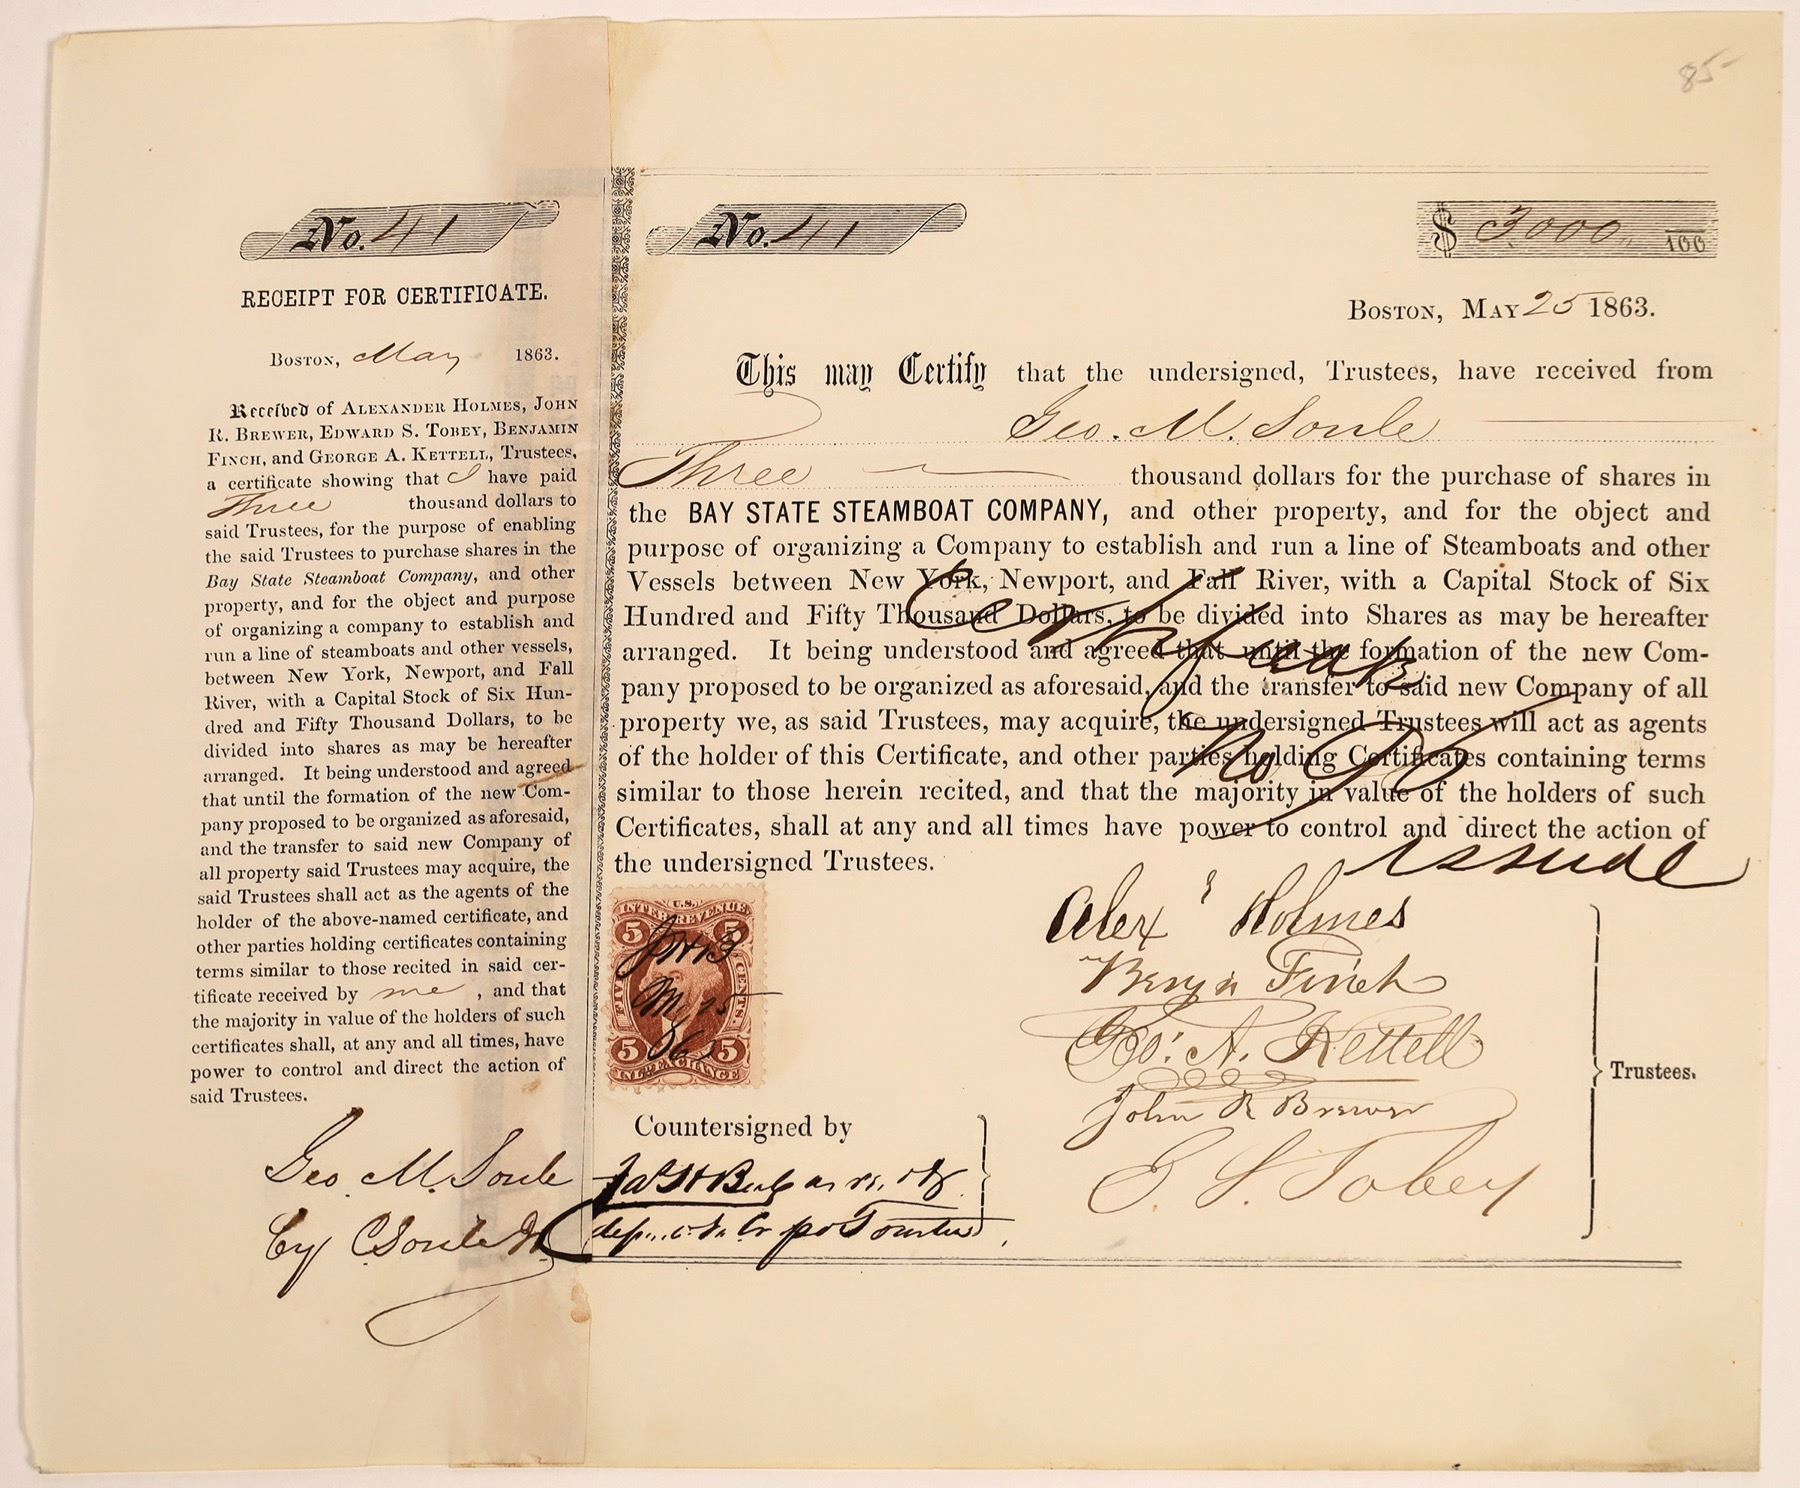 85-
No. 41
RECEIPT FOR CERTIFICATE.
BOSTON, May 1863.
Received of ALEXANDER HOLMES, JOHN
R. BREWER, EDWARD S. TOBEY, BENJAMIN
FINCH, and GEORGE A. KETTELL, Trustees,
a certificate showing that I have paid
Three thousand dollars to
said Trustees, for the purpose of enabling
the said Trustees to purchase shares in the
Bay State Steamboat Company, and other
property, and for the object and purpose
of organizing a company to establish and
run a line of steamboats and other vessels,
between New York, Newport, and Fall
River, with a Capital Stock of Six Hun-
dred and Fifty Thousand Dollars, to be
divided into shares as may be hereafter
arranged. It being understood and agreed
that until the formation of the new Com-
pany proposed to be organized as aforesaid,
and the transfer to said new Company of
all property said Trustees may acquire, the
said Trustees shall act as the agents of the
holder of the above-named certificate, and
other parties holding certificates containing
terms similar to those recited in said cer-
tificate received by me, and that
the majority in value of the holders of such
certificates shall, at any and all times, have
power to control and direct the action of
said Trustees.
Geo. M. Soule
by C Soule Jr
No. 41
$ 3,000 100
BOSTON, MAY 25 1863.
This may Certify that the undersigned, Trustees, have received from
Geo. M. Soule
Three thousand dollars for the purchase of shares in
the BAY STATE STEAMBOAT COMPANY, and other property, and for the object and
purpose of organizing a Company to establish and run a line of Steamboats and other
Vessels between New York, Newport, and Fall River, with a Capital Stock of Six
Hundred and Fifty Thousand Dollars, to be divided into Shares as may be hereafter
arranged. It being understood and agreed that until the formation of the new Com-
pany proposed to be organized as aforesaid, and the transfer to said new Company of all
property we, as said Trustees, may acquire, the undersigned Trustees will act as agents
of the holder of this Certificate, and other parties holding Certificates containing terms
similar to those herein recited, and that the majority in value of the holders of such
Certificates, shall at any and all times have power to control and direct the action of
the undersigned Trustees.
No 90
issued
U.S.
INTER. REVENUE
5 5
FIVE CENTS.
5 5
INL. EXCHANGE
My 25
Alexr Holmes
Benjn Finch
Geo: A. Kettell
John R Brewer
E. S. Tobey
Trustees.
Countersigned by